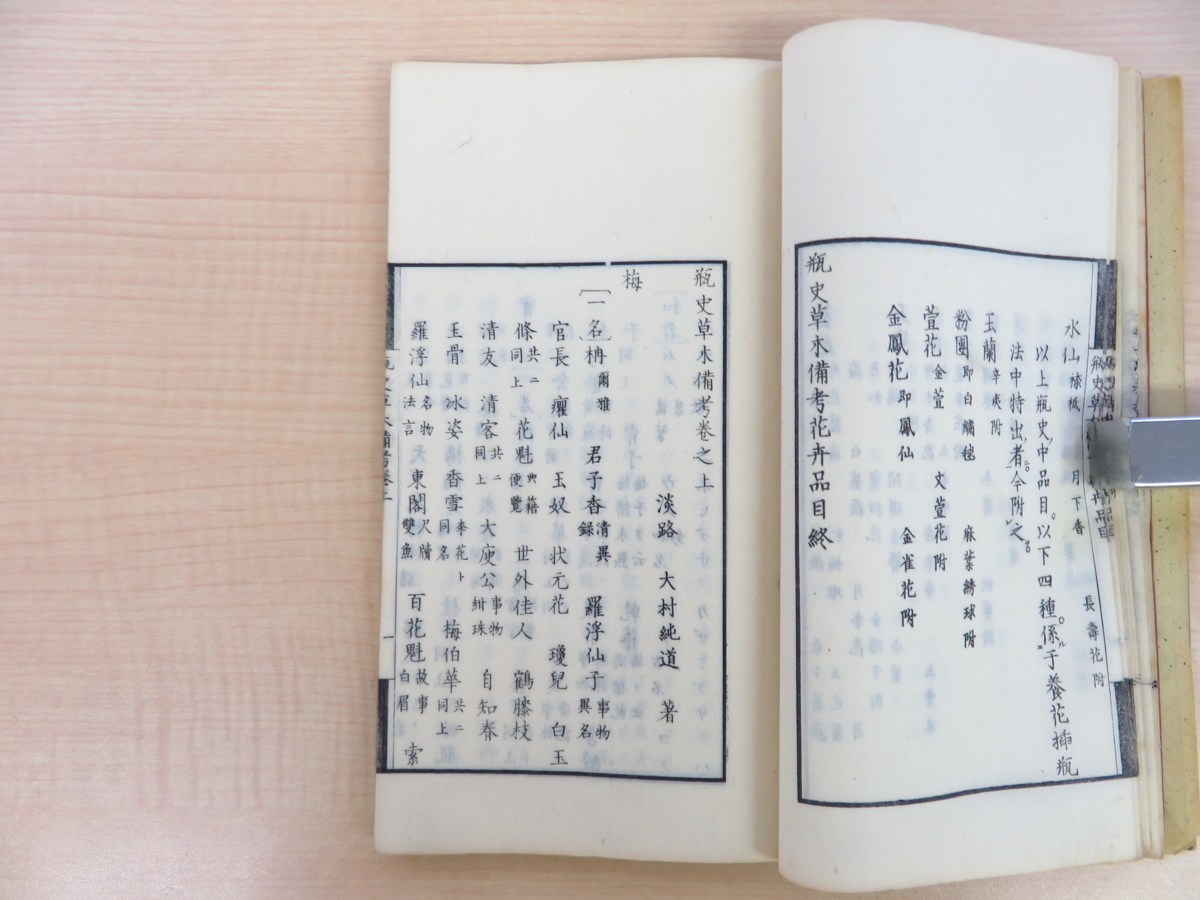 水仙 様紙 月下香 長壽花附
以上瓶史中品目。以下四種。係于養花插瓶
法中特出者今附之
玉蘭 辛夷附
粉團 即白繡毬 麻葉綉球附
萱花 金萱 文萱花附
金鳳花 即鳳仙 金雀花附
瓶史草木備考花卉品目終
瓶史草木備考卷之上
淡路 大村純道 著
梅
一名 冉 爾雅 君子香 清異録 羅浮仙子 事物異名
官長癯仙 玉奴 状元花 瓊兒 白玉
條 共二同上 花魁 典籍便覽 世外佳人 鶴膝枝
清友 清客 共二同上 大庾公 事物紺珠 自知春
玉骨 冰姿 香雪 李花ト同名 梅伯華 共二同上
羅浮仙 名物法言 東閣 尺牘雙魚 百花魁 故事白眉 索